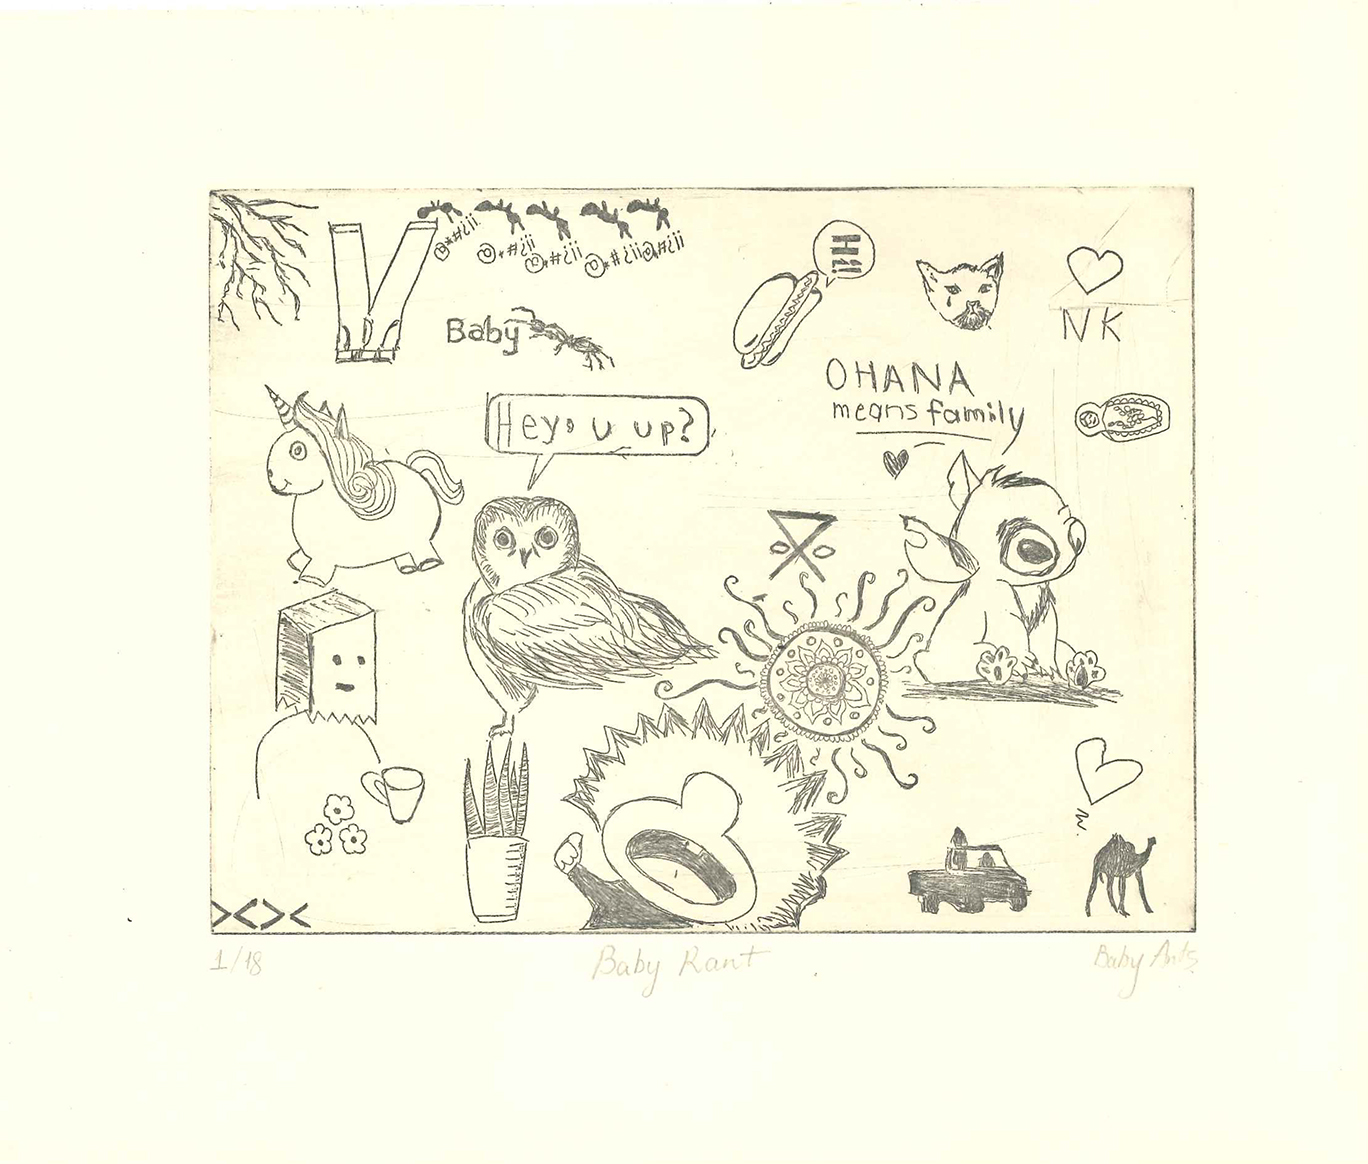 @*#¿¡¡
@*#¿¡¡
@*#¿¡¡
@*#¿¡¡
@*#¿¡¡
Hi!
Baby
NK
OHANA
means family
Hey, u up?
1/18
Baby Rant
Baby Ants